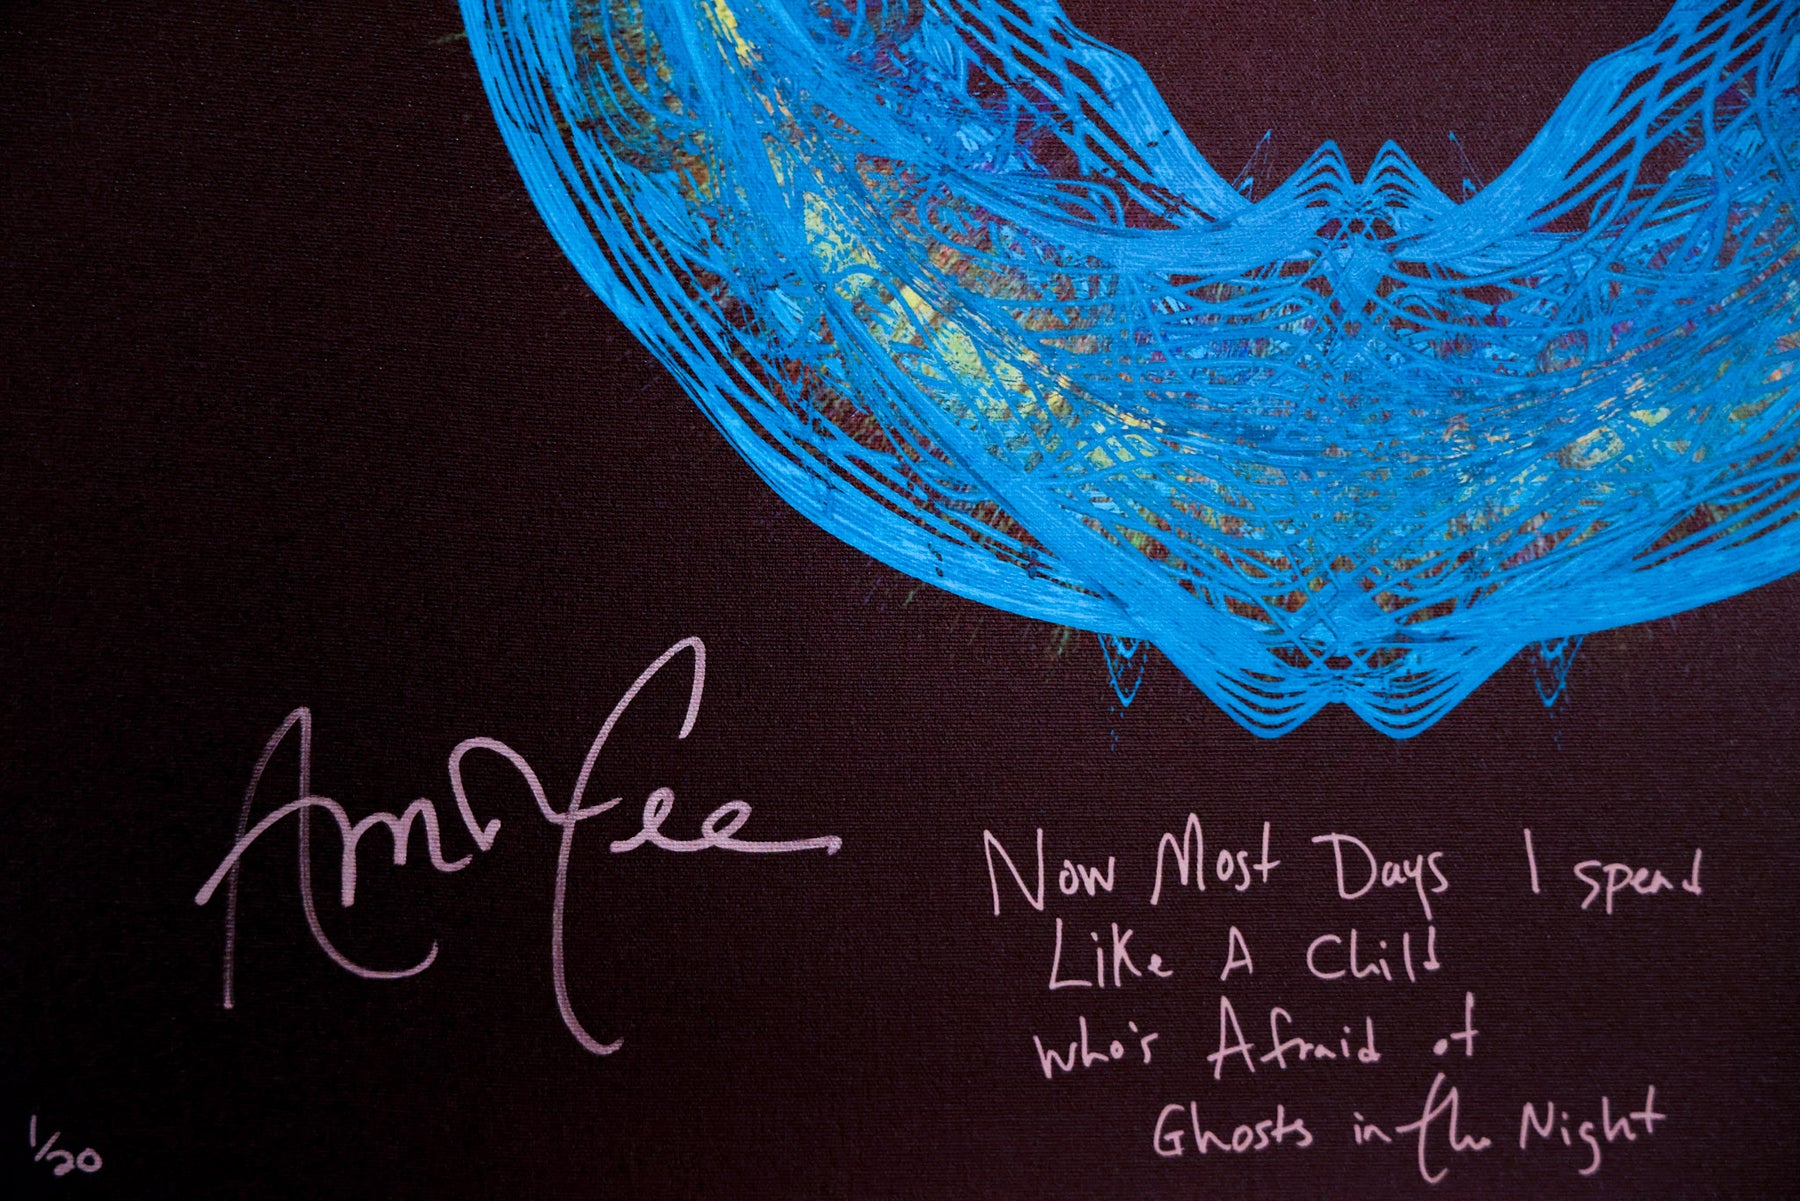 Amy Lee
Now Most Days I spend
Like A Child
who's Afraid of
Ghosts in the Night
1/20